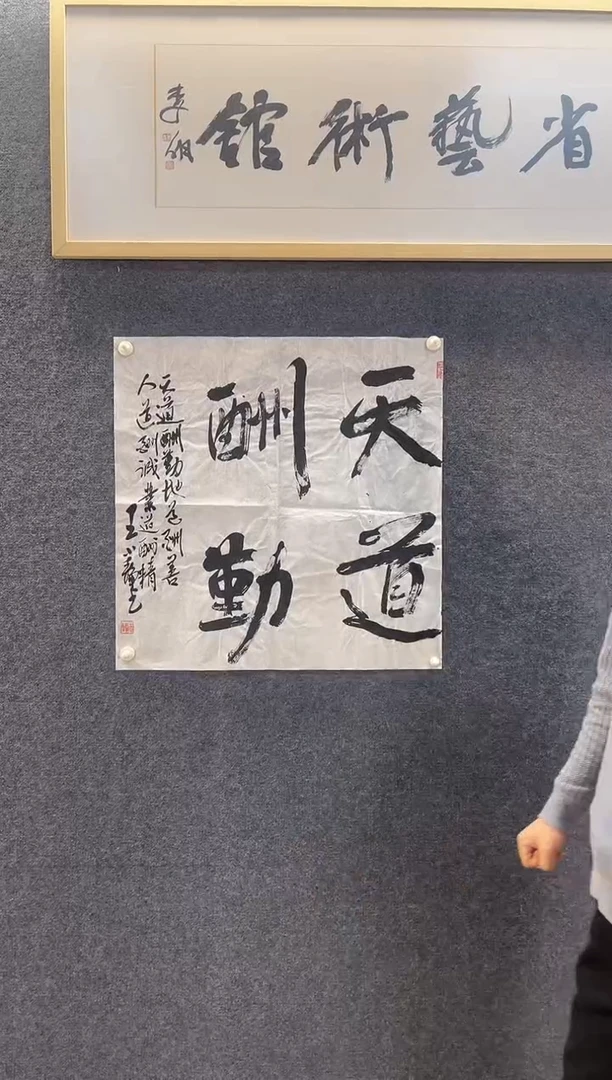 省藝術館
天道
酬勤
天道酬勤地道酬善
人道酬誠業道酬精